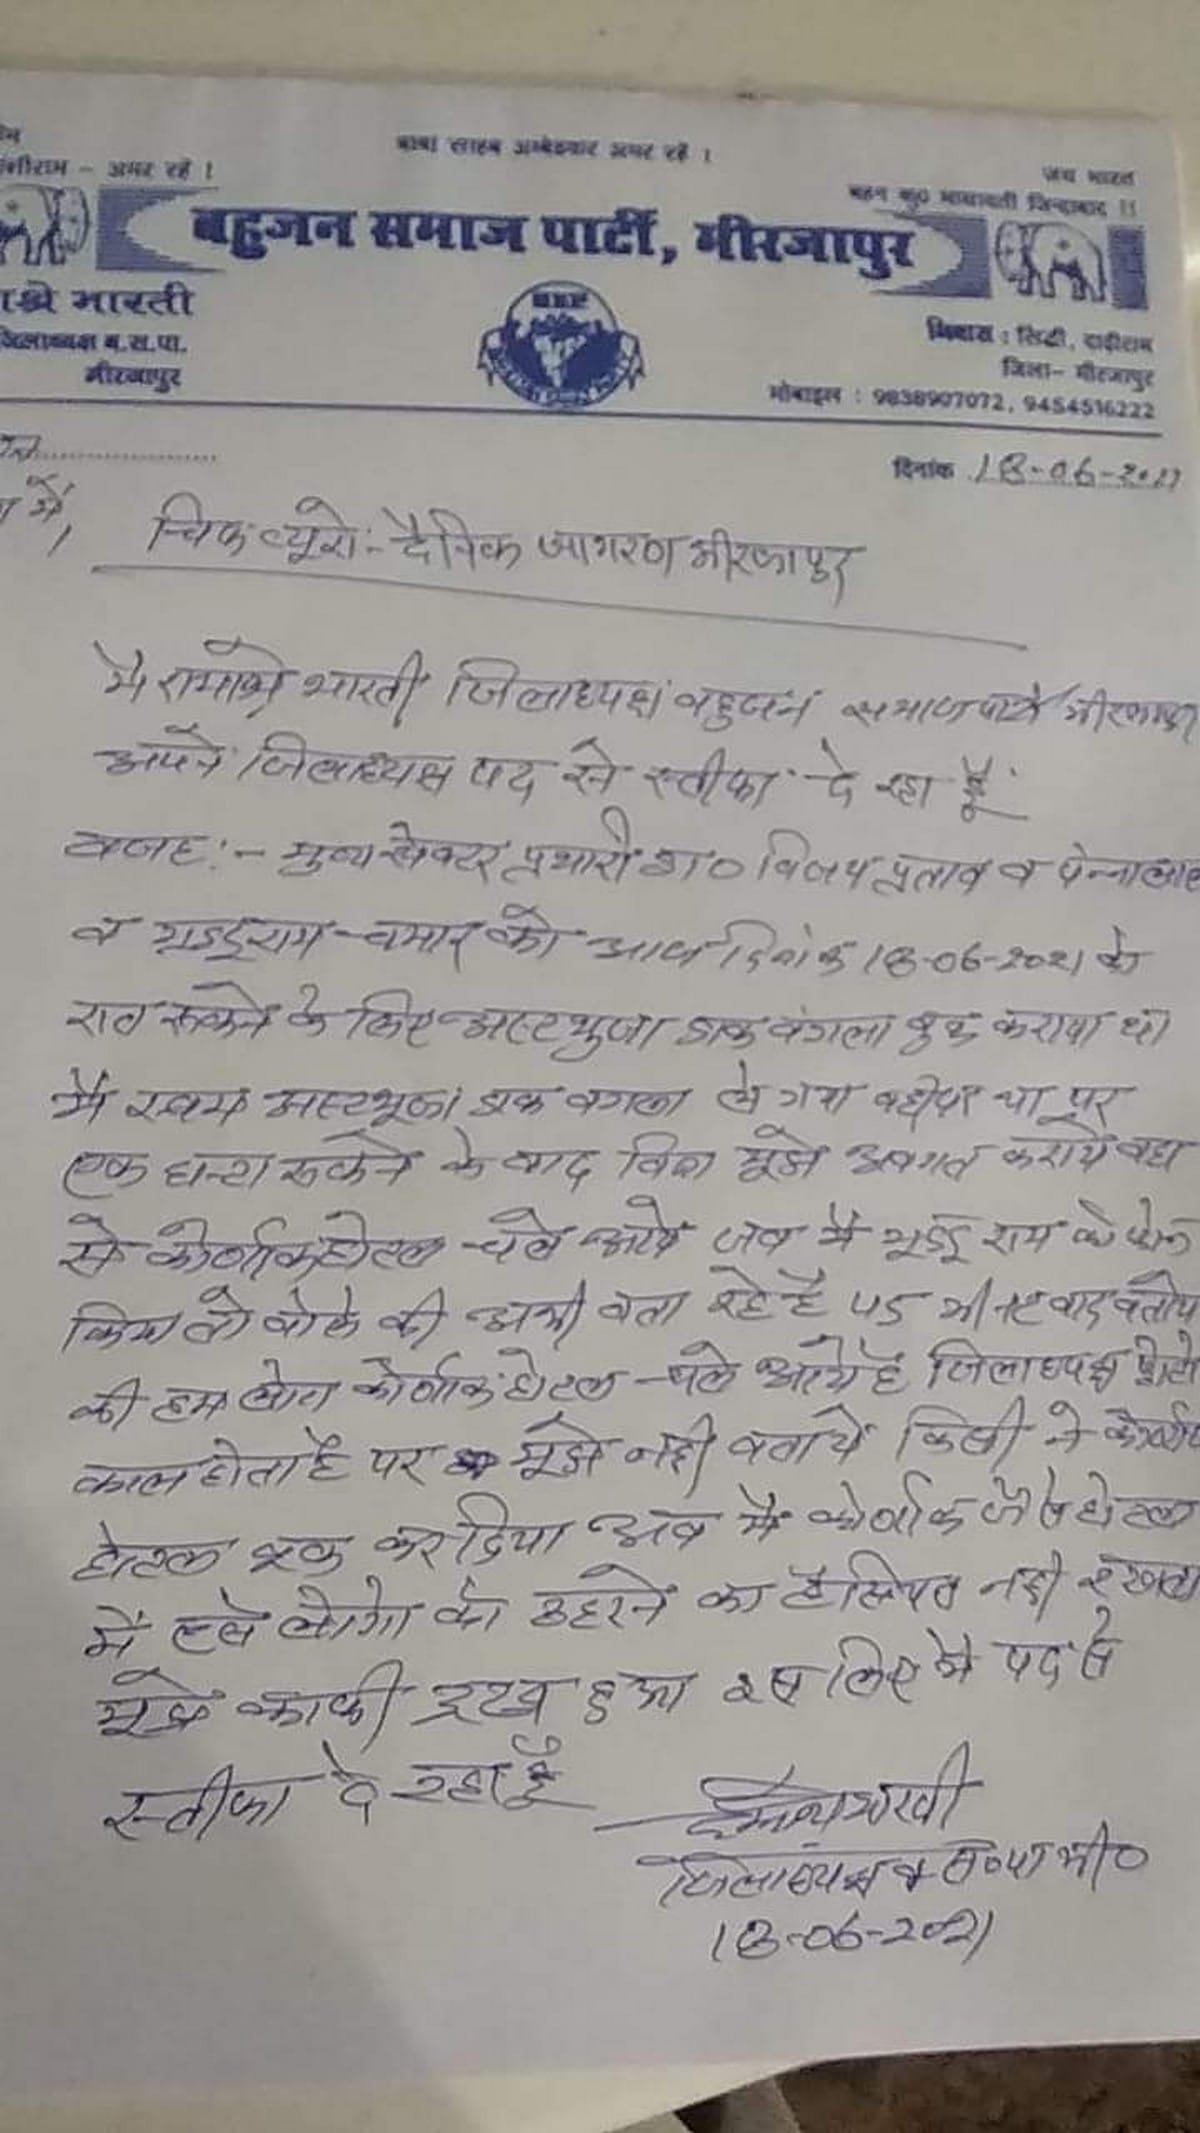 बाबा साहब अम्बेडकर अमर रहें ।
- अमर रहें ।
जय भारत
बहन कु० मायावती जिन्दाबाद !!
बहुजन समाज पार्टी, मीरजापुर
भारती
जिलाध्यक्ष ब.स.पा.
मीरजापुर
BSP
निवास : सिटी, दाढ़ीराम
जिला- मीरजापुर
मोबाइल : 9838907072, 9454516222
दिनांक 18-06-2021
में,
चिफ ब्यूरो:- दैनिक जागरण मीरजापुर
मै रामाश्रे भारती जिलाध्यक्ष बहुजन समाज पार्टी मीरजापुर
अपने जिलाध्यक्ष पद से स्तीफा दे रहा हूँ
वजह:- मुख्य सेक्टर प्रभारी डा० विजय प्रताव व पन्नालाल
व गुड्डूराम चमार को आज दिनांक 18-06-2021 को
रात रूकने के लिए अस्टभुजा डाक बंगला बुक कराया था
मै स्वयम अस्टभूजा डाक बगला ले गया वहीपर था पर
एक घन्टा रूकने के बाद बिना मूझे अवगत कराये वहा
से कोर्णाक होटल चले आये जब मै गुड्डू राम को फोन
किया तो बोले की अभी बता रहे है मीनट बाद बताये
की हम लोग कोर्णाक होटल चले आये है जिलाध्यक्ष
काल होता है पर मूझे नही बताये किसी ने कोर्णाक
होटल बुक कर दिया अब मै कोर्णाक जैसे होटल
में लोगो को ठहरने का हैसियत नही रखता
मूझे काफी दुःख हुआ इस लिए मै पद से
स्तीफा दे रहा हूँ
जिलाध्यक्ष ब०स०पा० मी०
18-06-2021